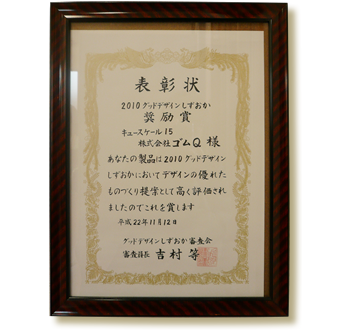 表彰状
2010グッドデザインしずおか
奨励賞
キュースケール15
株式会社ゴムQ 様
あなたの製品は2010グッドデザイン
しずおかにおいてデザインの優れた
ものづくり提案として高く評価され
ましたのでこれを賞します
平成22年11月12日
グッドデザインしずおか審査会
審査員長 吉村 等